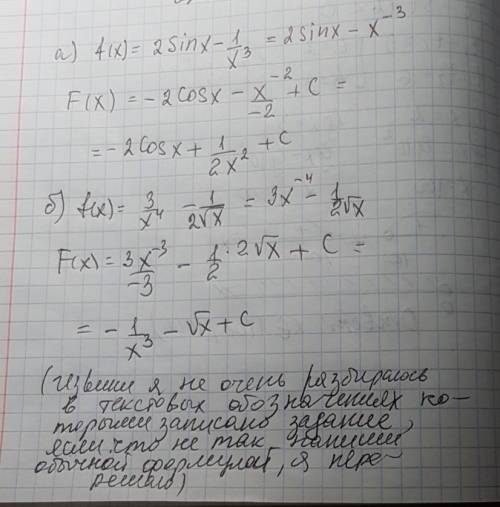 а) f(x) = 2sinx - 1/x³ = 2sinx - x⁻³
F(x) = -2cosx - x⁻²/-2 + C =
= -2cosx + 1/2x² + C
б) f(x) = 3/x⁴ - 1/2√x = 3x⁻⁴ - 1/2√x
F(x) = 3x⁻³/-3 - 1/2 · 2√x + C =
= - 1/x³ - √x + C
(Извини я не очень разбираюсь
в текстовых обозначениях ко-
торыми записано задание,
если что не так напиши
обычной формулой, я пере-
решаю)